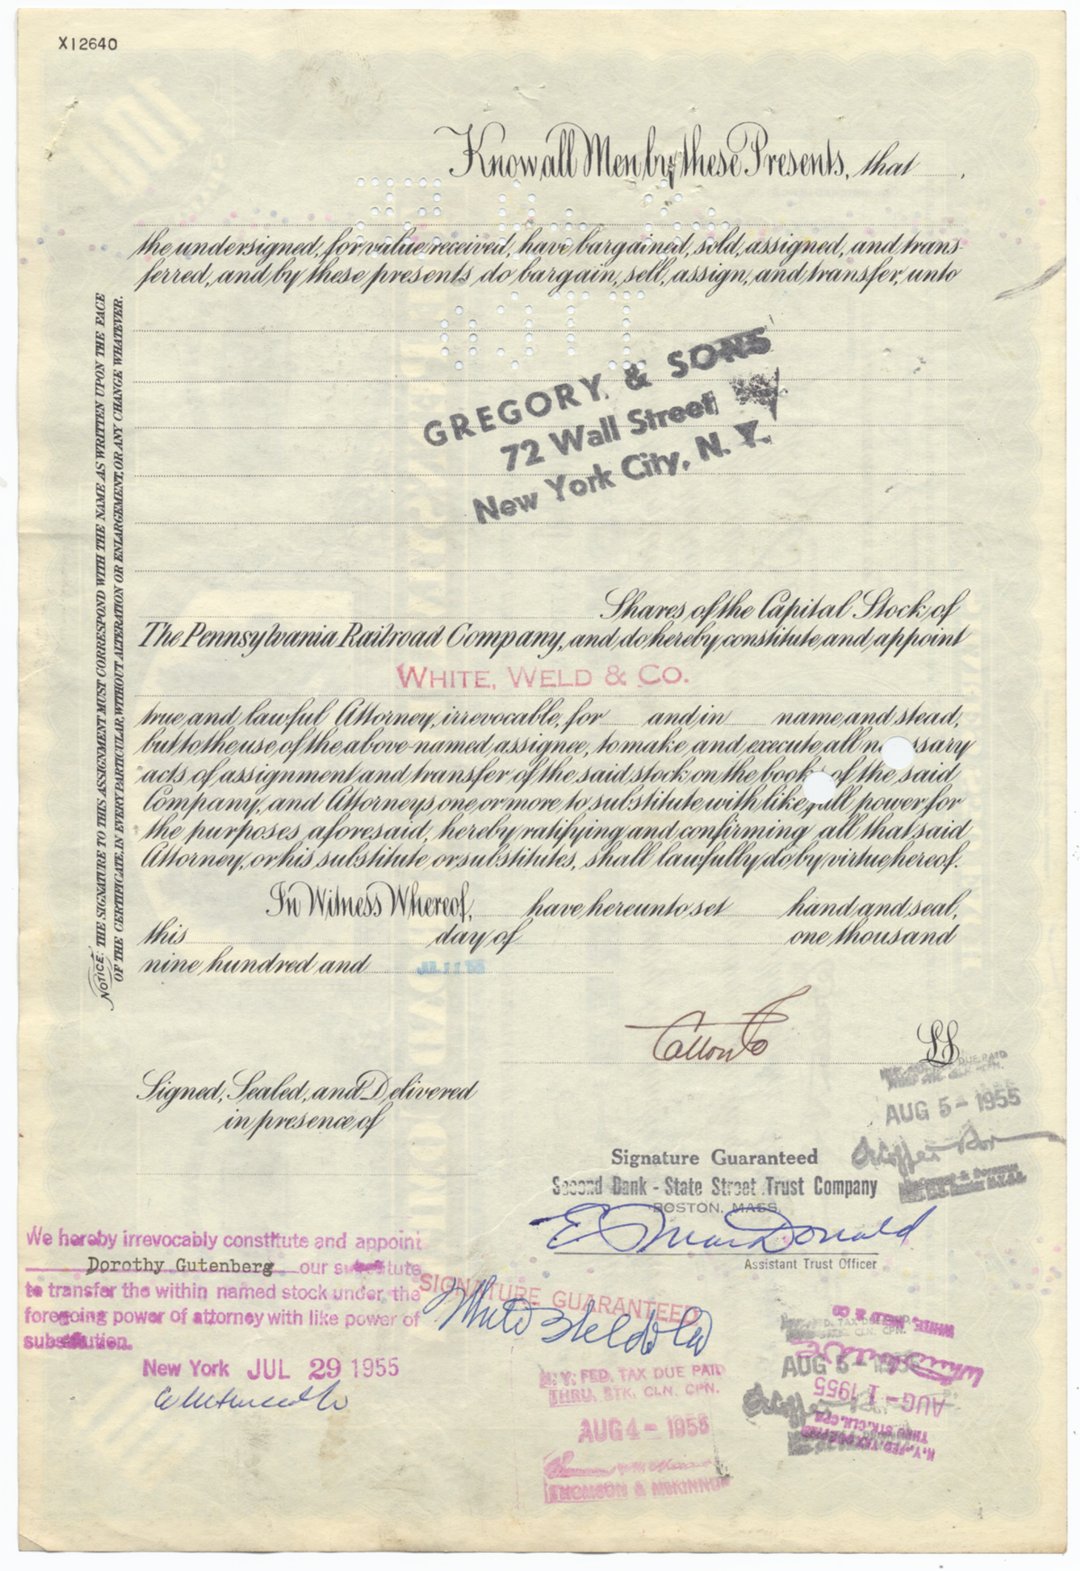 X12640
Know all Men by these Presents, that
the undersigned, for value received, have bargained, sold, assigned, and trans-
ferred, and by these presents do bargain, sell, assign, and transfer, unto
GREGORY & SONS
72 Wall Street
New York City, N. Y.
NOTICE: THE SIGNATURE TO THIS ASSIGNMENT MUST CORRESPOND WITH THE NAME AS WRITTEN UPON THE FACE
OF THE CERTIFICATE, IN EVERY PARTICULAR, WITHOUT ALTERATION OR ENLARGEMENT, OR ANY CHANGE WHATEVER.
Shares of the Capital Stock of
The Pennsylvania Railroad Company, and do hereby constitute and appoint
WHITE, WELD & CO.
true and lawful Attorney, irrevocable, for and in name and stead,
but to the use of the above-named assignee, to make and execute all necessary
acts of assignment and transfer of the said stock on the books of the said
Company, and Attorneys one or more to substitute with like full power for
the purposes aforesaid, hereby ratifying and confirming all that said
Attorney, or his substitute or substitutes, shall lawfully do by virtue hereof.
In Witness Whereof, have hereunto set hand and seal,
this day of one thousand
nine hundred and
LS
Signed, Sealed, and Delivered
in presence of
AUG 5 - 1955
Signature Guaranteed
Second Bank - State Street Trust Company
BOSTON, MASS.
E MacDonald
Assistant Trust Officer
We hereby irrevocably constitute and appoint
Dorothy Gutenberg our substitute
to transfer the within named stock under the
foregoing power of attorney with like power of
substitution.
New York JUL 29 1955
SIGNATURE GUARANTEED
White Weld & Co
N. Y. FED. TAX DUE PAID
THRU. STK. CLN. CPN.
AUG 4 - 1955
THOMSON & MCKINNON
AUG 5 - 1955
WHITE, WELD & CO
AUG - 1 1955
THRU STK. CLN. CPN.
N.Y. FED. TAX DUE PAID